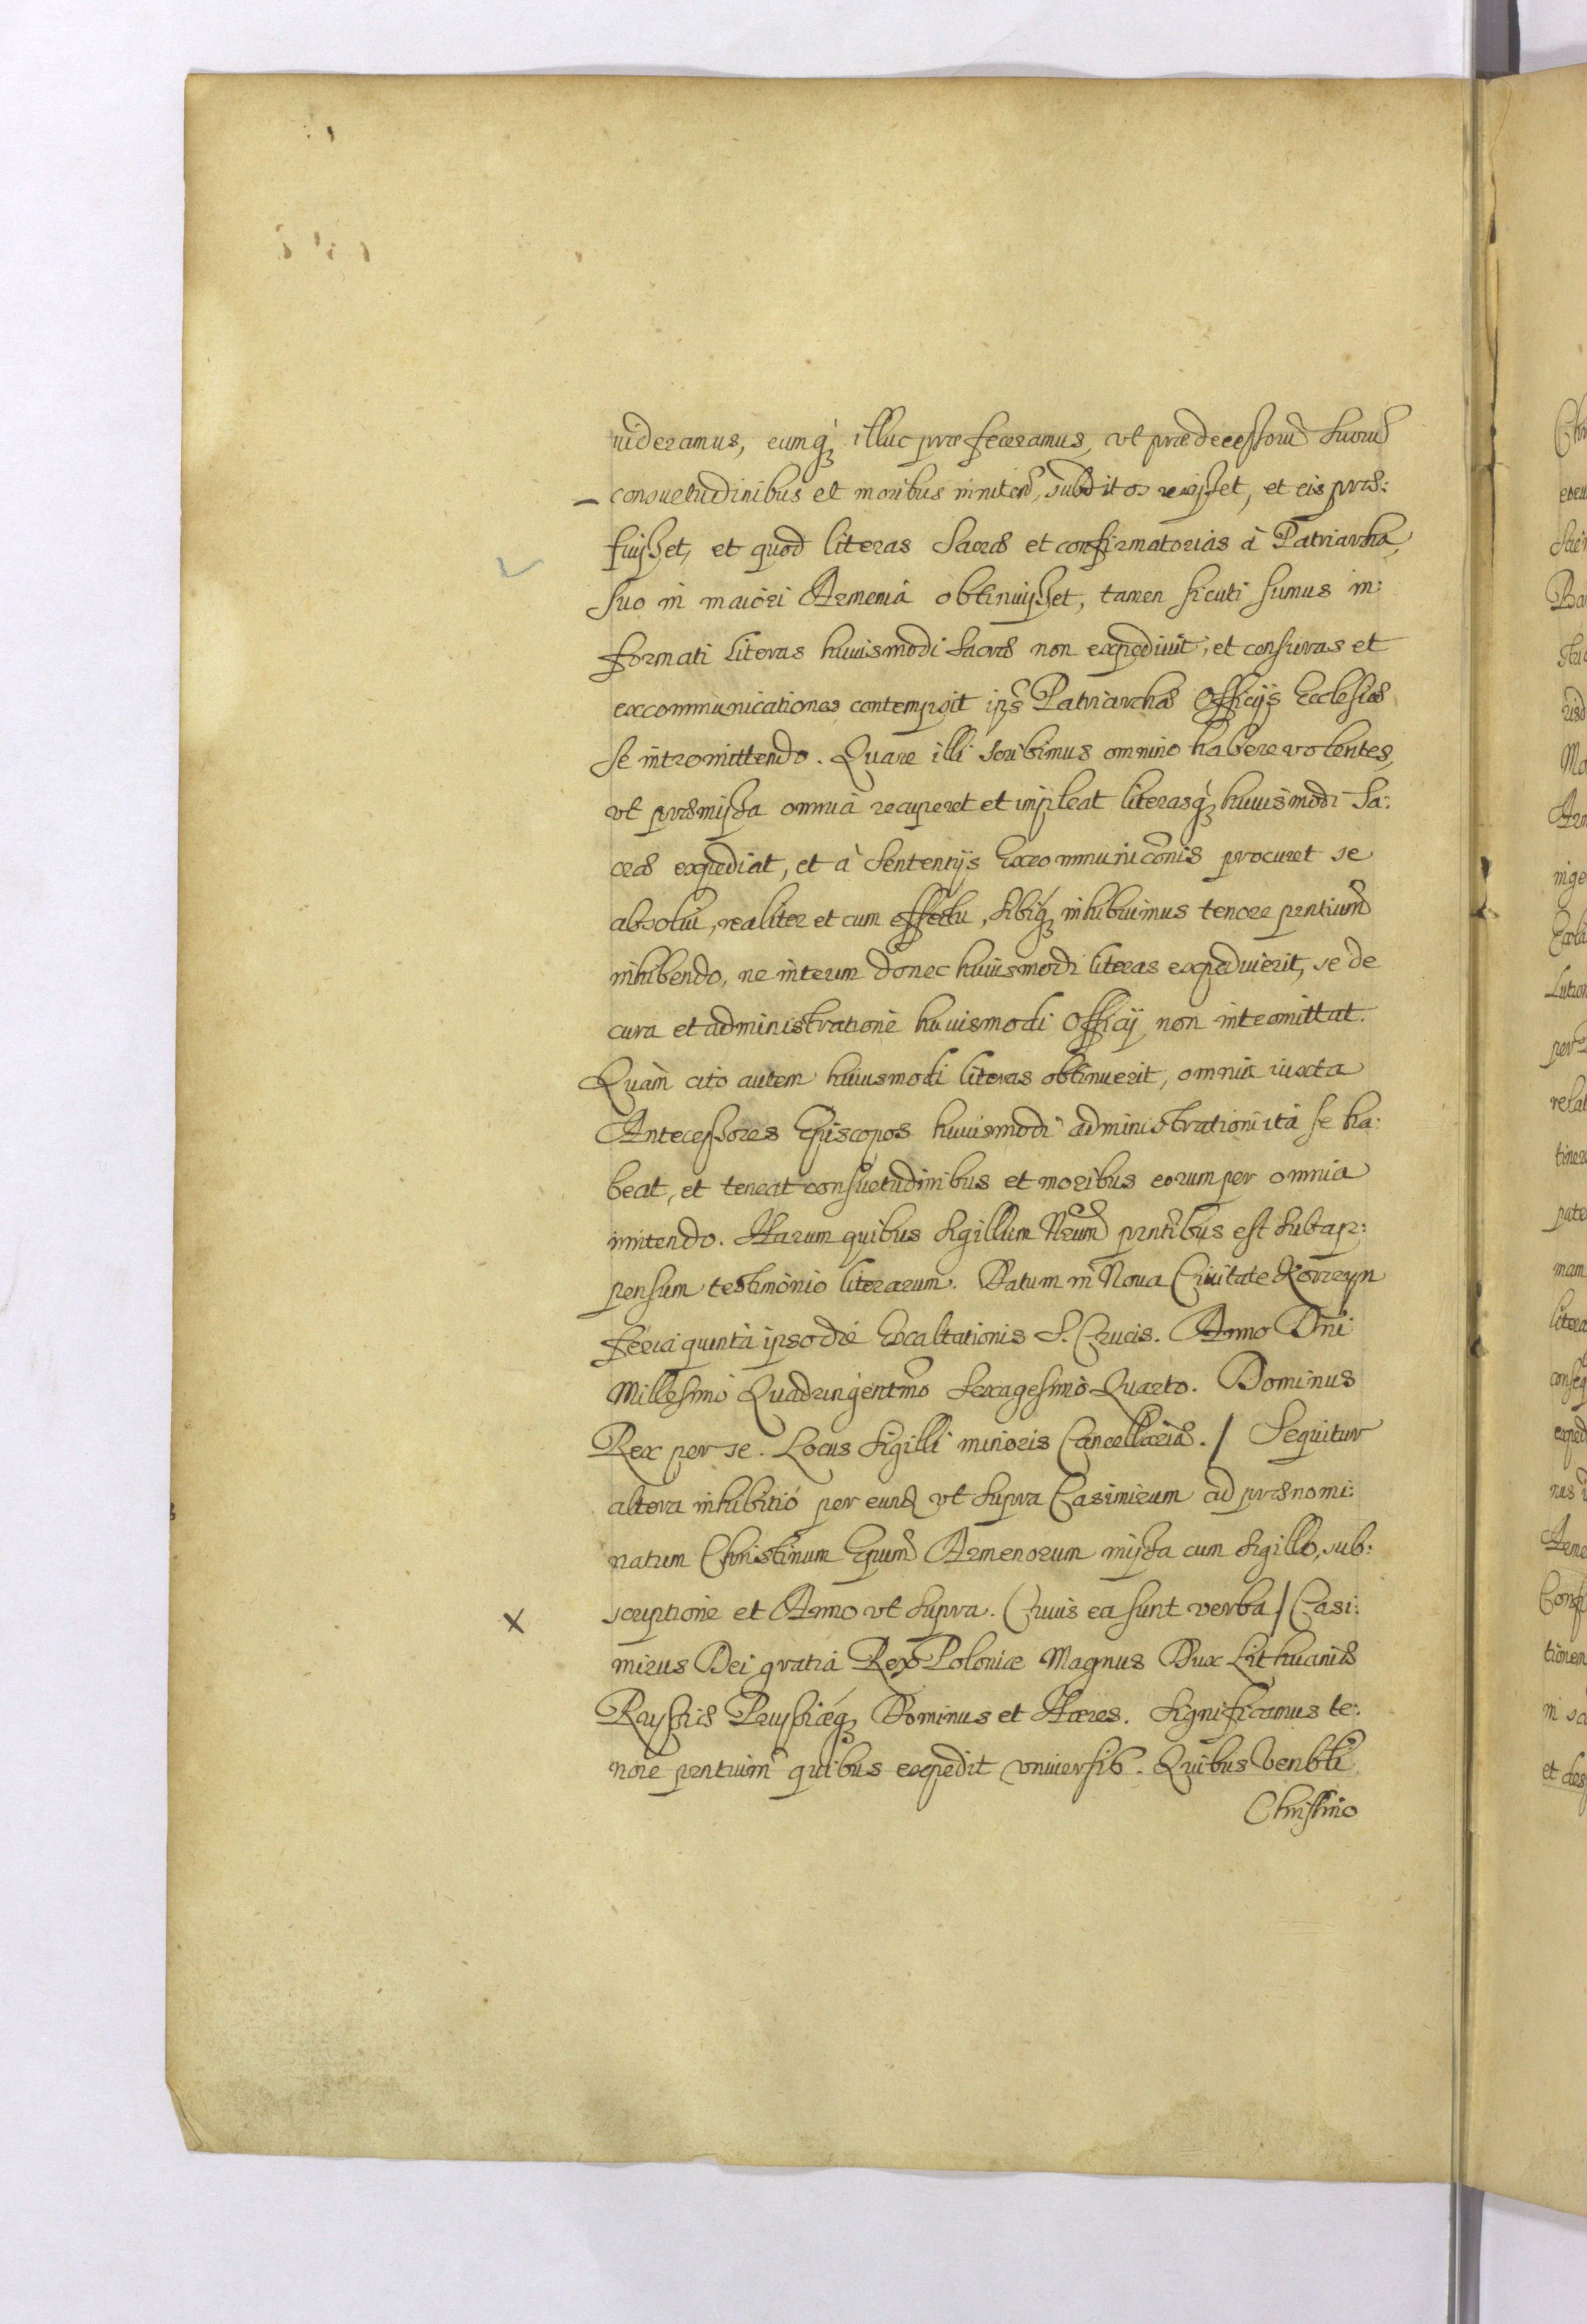 uideramus, eumq́ illuc præfeceramus, vt prædecessorũ suorũ
consuetudinibus et moribus innitens, subditos rexisset, et eis præ:
fuisset, et quod literas Sacras et confirmatorias à Patriarcha
suo in maiori Armenia obtinuisset, tamen sicuti sumus in:
formati literas huiusmodi sacras non expediuit, et censuras et
excommunicationes contempsit ips̃ Patriarchæ Officijs Ecclesiæ
se intromittendo. Quare illi scribimus omnino habere volentes,
vt præmissa omnia recuperet et impleat literasq́ huiusmodi Sa:
cras expediat, et à sententijs Excommunicõnis procuret se
absolui, realiter et cum effectu, sibiq́ inhibuimus tenore pntium
inhibendo, ne interim donec huiusmodi literas expediuerit, se de
cura et administratione huiusmodi Officij non intromittat.
Quàm cito autem huiusmodi literas obtinuerit, omnia iuxta
Antecessores Episcopos huiusmodi administrationi ita se ha:
beat, et teneat consuetudinibus et moribus eorum per omnia
innitendo. Harum quibus Sigillum Nrum pntibus est subap:
pensum testimonio literarum. Datum in Noua Ciuitate Korczyn
feria quinta ipso die Exaltationis S. Crucis. Anno Dni
Millesimo Quadringentmo Sexagesimo Quarto. Dominus
Rex per se. Locus Sigilli minoris Cancellariæ. / Sequitur
altera inhibitio per eund vt supra Casimirum ad prænomi:
natum Christinum Epum Armenorum missa cum sigillo, sub:
scriptione et Anno vt supra. Cuius ea sunt verba / Casi:
mirus Dei gratia Rex Poloniæ Magnus Dux Lithuaniæ
Russiæ Prussiæq́ Dominus et Hæres. Significamus te:
nore pntium quibus expedit vniuersis. Quibus Venbli
Christino